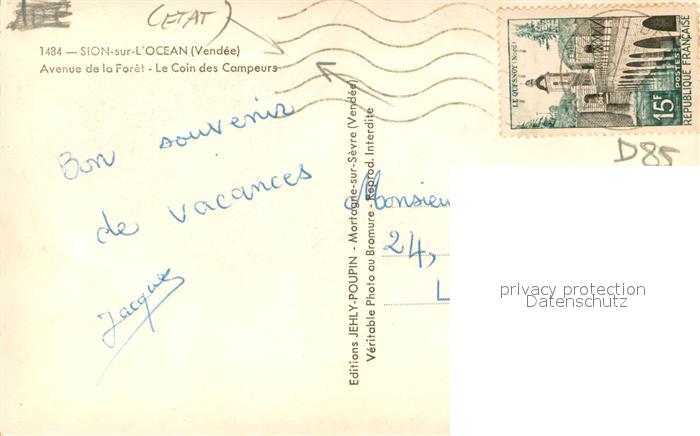 (ETAT)
1484 — SION-sur-L'OCEAN (Vendée)
Avenue de la Forêt - Le Coin des Campeurs
LE QUESNOY (Nord)
15F
POSTES
REPUBLIQUE FRANÇAISE
D85
Bon souvenir
de vacances
Jacques
Editions JEHLY-POUPIN - Mortagne-sur-Sèvre (Vendée)
Véritable Photo au Bromure - Reprod. Interdite
Monsieu
24,
L
privacy protection
Datenschutz